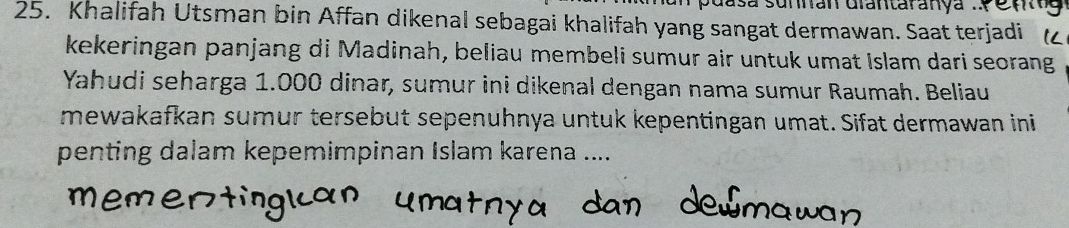 puasa sunnah diantaranya ..
25. Khalifah Utsman bin Affan dikenal sebagai khalifah yang sangat dermawan. Saat terjadi
kekeringan panjang di Madinah, beliau membeli sumur air untuk umat Islam dari seorang
Yahudi seharga 1.000 dinar, sumur ini dikenal dengan nama sumur Raumah. Beliau
mewakafkan sumur tersebut sepenuhnya untuk kepentingan umat. Sifat dermawan ini
penting dalam kepemimpinan Islam karena ....
mementingkan umatnya dan dermawan